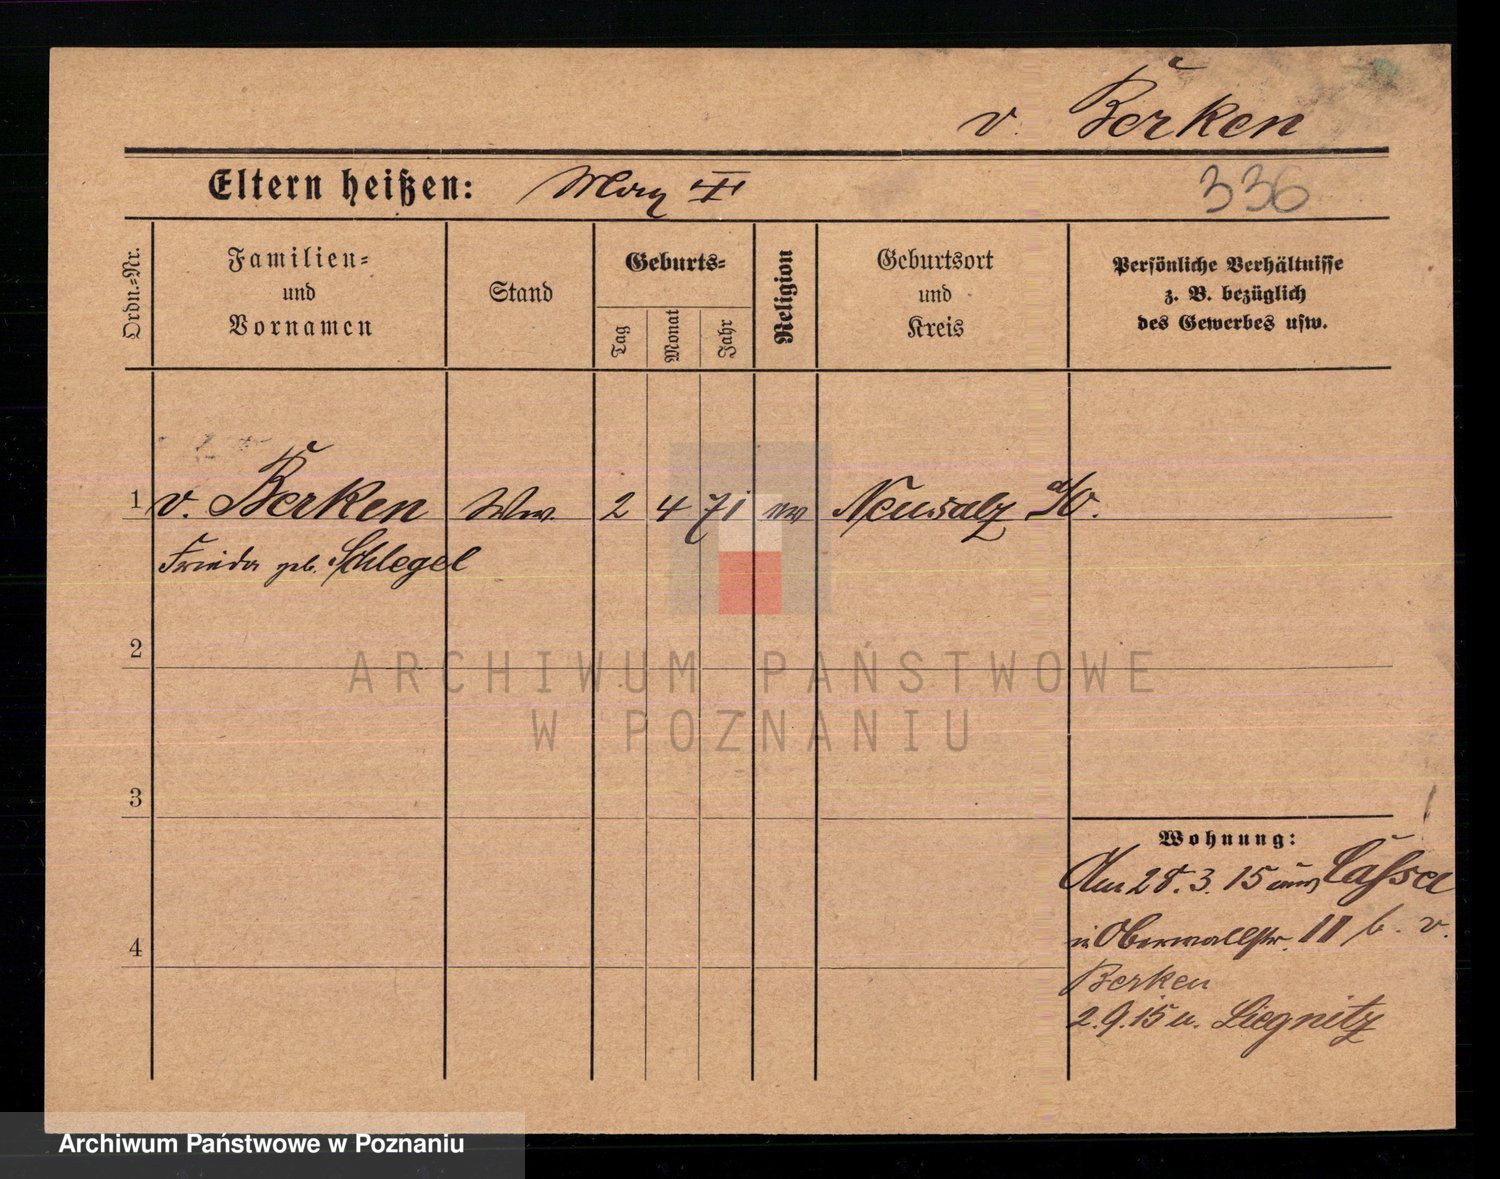 v. Berken
Eltern heißen:
336
Ordn.-Nr.
Familien-
und
Vornamen
Stand
Geburts-
Tag
Monat
Jahr
Religion
Geburtsort
und
Kreis
Persönliche Verhältnisse
z. B. bezüglich
des Gewerbes usw.
1 v. Berken Ww. 2 4 71 Neusalz a/O.
Frieda geb. Schlegel
2
3
4
Wohnung:
Am 28. 3. 15 aus Cassel
in Oberwallstr. 11 b. v.
Berken
2.9.15 n. Liegnitz
ARCHIWUM PAŃSTWOWE
W POZNANIU
Archiwum Państwowe w Poznaniu